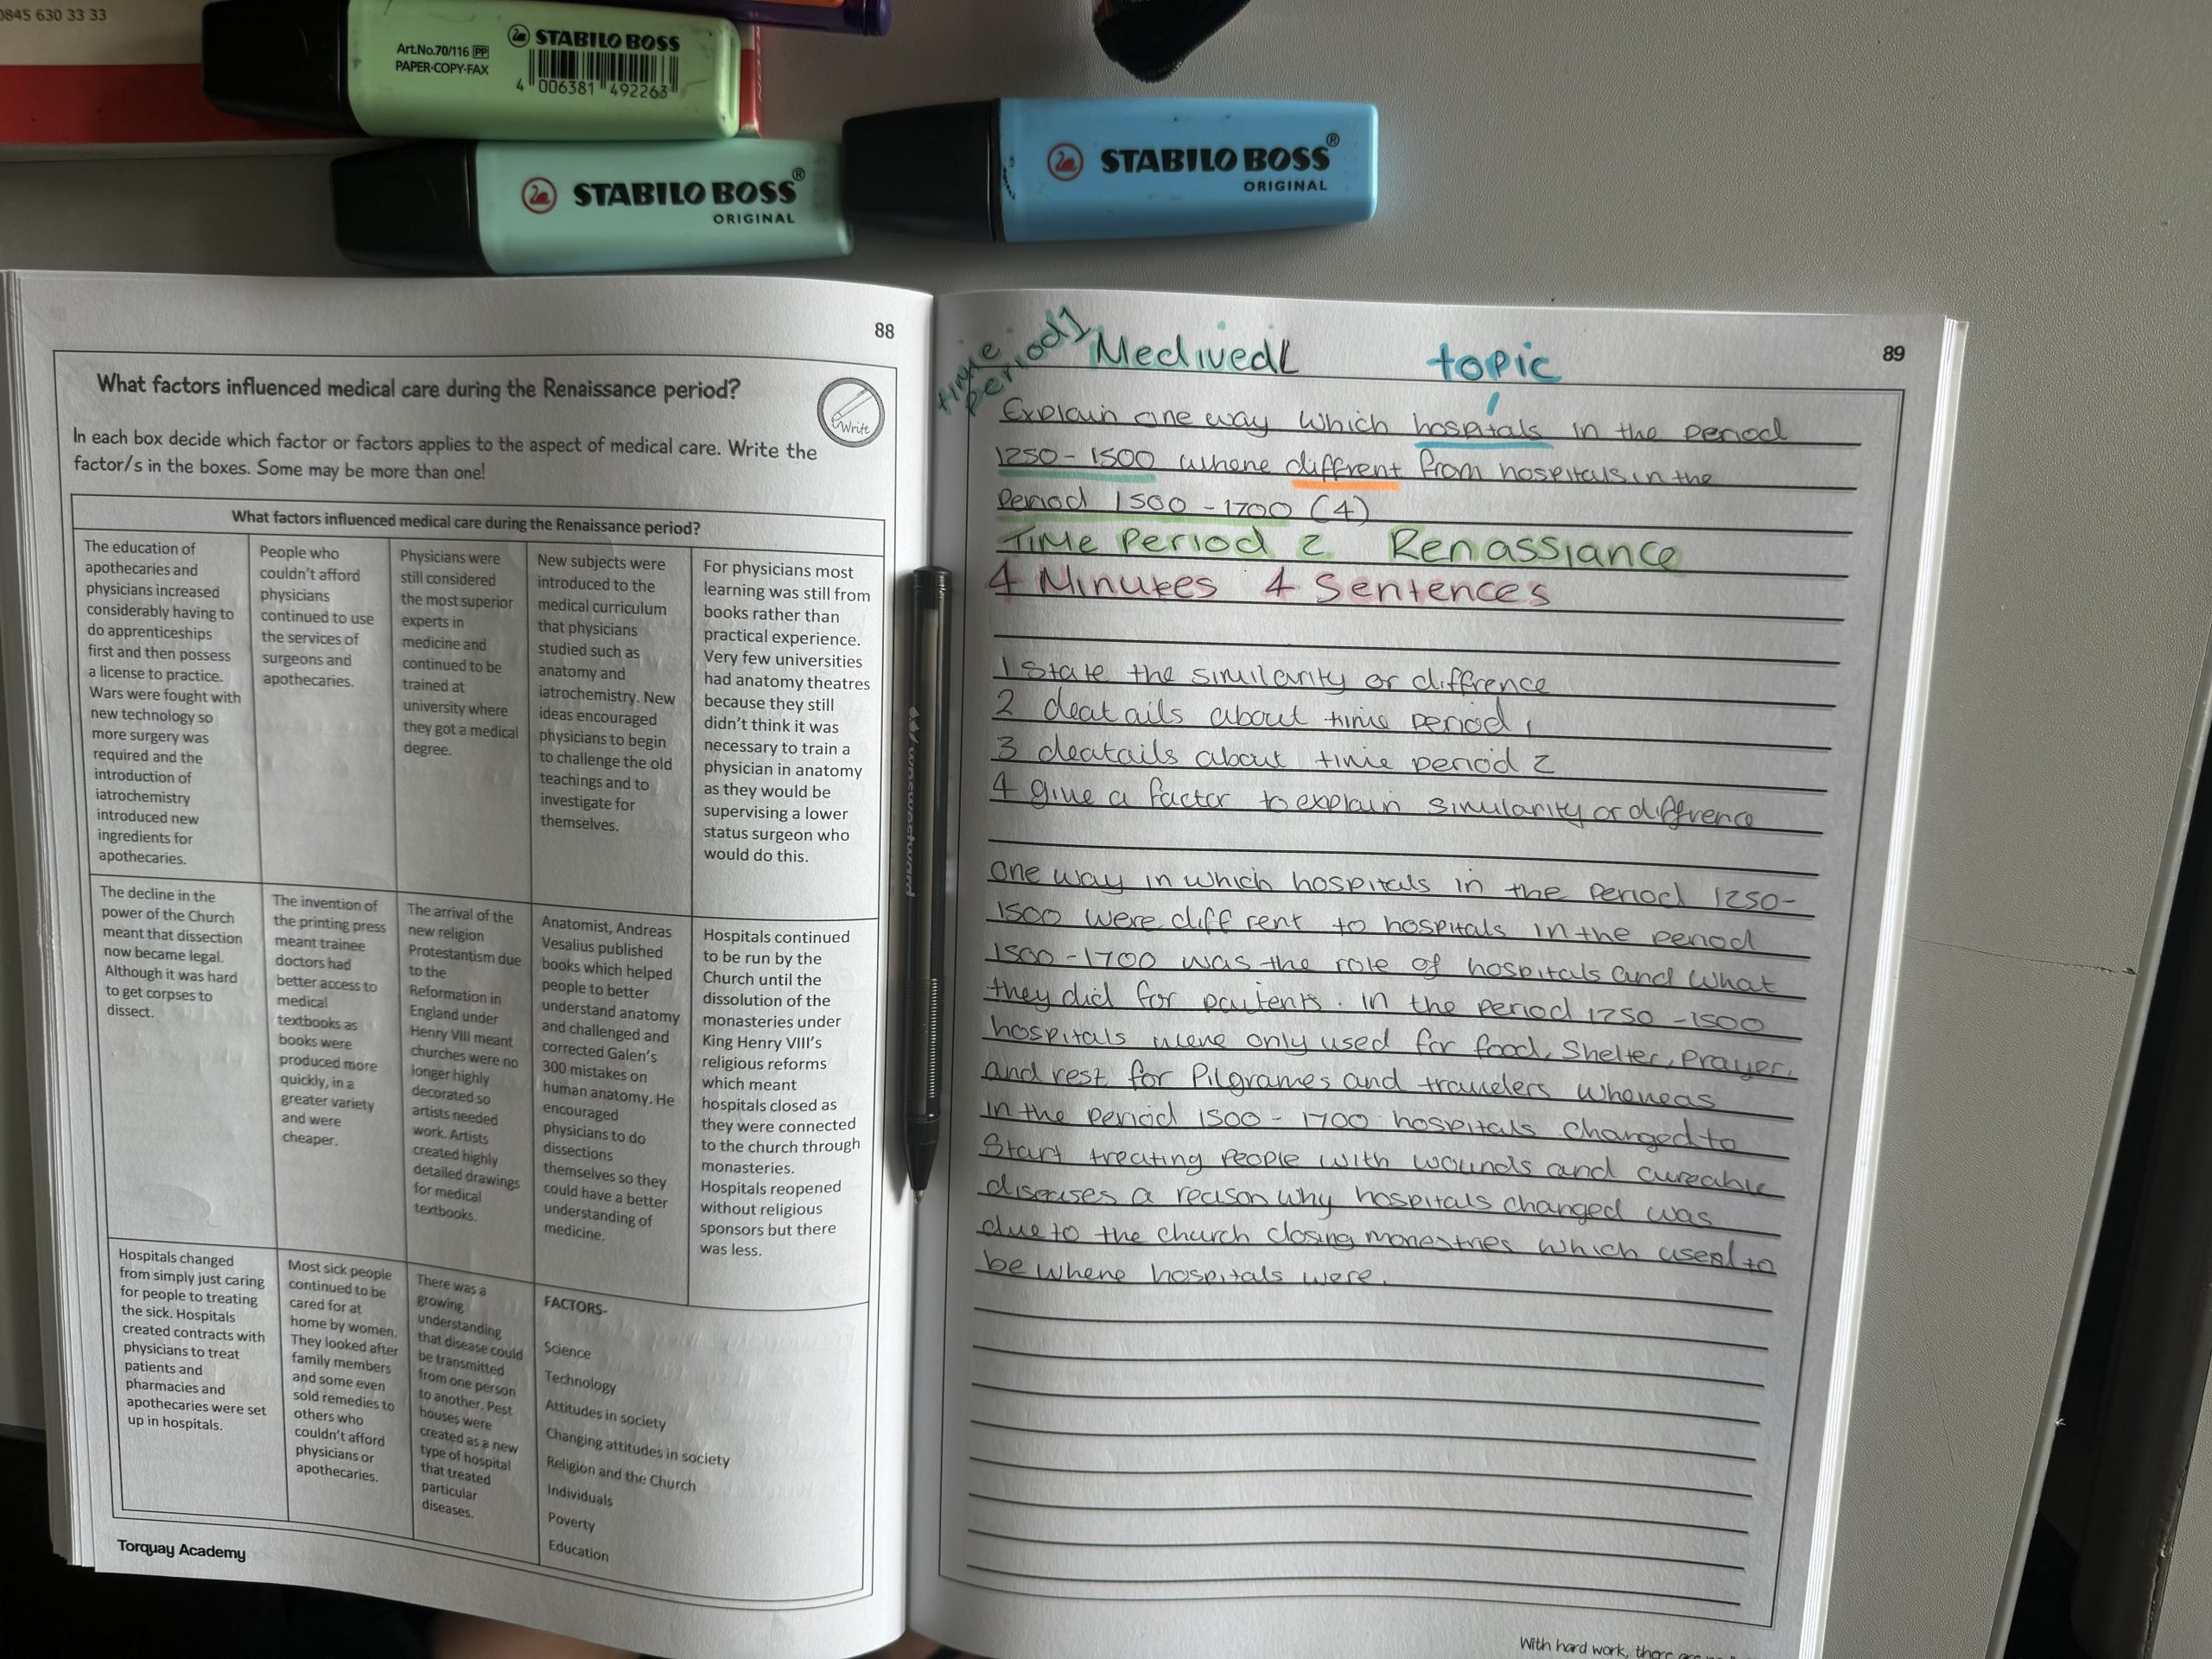 0845 630 33 33
Art.No.70/116 PP
PAPER-COPY-FAX
STABILO BOSS
4 006381 492263
STABILO BOSS®
ORIGINAL
STABILO BOSS®
ORIGINAL
88
What factors influenced medical care during the Renaissance period?
Write
In each box decide which factor or factors applies to the aspect of medical care. Write the
factor/s in the boxes. Some may be more than one!
What factors influenced medical care during the Renaissance period?
The education of
apothecaries and
physicians increased
considerably having to
do apprenticeships
first and then possess
a license to practice.
Wars were fought with
new technology so
more surgery was
required and the
introduction of
iatrochemistry
introduced new
ingredients for
apothecaries.
People who
couldn't afford
physicians
continued to use
the services of
surgeons and
apothecaries.
Physicians were
still considered
the most superior
experts in
medicine and
continued to be
trained at
university where
they got a medical
degree.
New subjects were
introduced to the
medical curriculum
that physicians
studied such as
anatomy and
iatrochemistry. New
ideas encouraged
physicians to begin
to challenge the old
teachings and to
investigate for
themselves.
For physicians most
learning was still from
books rather than
practical experience.
Very few universities
had anatomy theatres
because they still
didn't think it was
necessary to train a
physician in anatomy
as they would be
supervising a lower
status surgeon who
would do this.
The decline in the
power of the Church
meant that dissection
now became legal.
Although it was hard
to get corpses to
dissect.
The invention of
the printing press
meant trainee
doctors had
better access to
medical
textbooks as
books were
produced more
quickly, in a
greater variety
and were
cheaper.
The arrival of the
new religion
Protestantism due
to the
Reformation in
England under
Henry VIII meant
churches were no
longer highly
decorated so
artists needed
work. Artists
created highly
detailed drawings
for medical
textbooks.
Anatomist, Andreas
Vesalius published
books which helped
people to better
understand anatomy
and challenged and
corrected Galen's
300 mistakes on
human anatomy. He
encouraged
physicians to do
dissections
themselves so they
could have a better
understanding of
medicine.
Hospitals continued
to be run by the
Church until the
dissolution of the
monasteries under
King Henry VIII's
religious reforms
which meant
hospitals closed as
they were connected
to the church through
monasteries.
Hospitals reopened
without religious
sponsors but there
was less.
Hospitals changed
from simply just caring
for people to treating
the sick. Hospitals
created contracts with
physicians to treat
patients and
pharmacies and
apothecaries were set
up in hospitals.
Most sick people
continued to be
cared for at
home by women.
They looked after
family members
and some even
sold remedies to
others who
couldn't afford
physicians or
apothecaries.
There was a
growing
understanding
that disease could
be transmitted
from one person
to another. Pest
houses were
created as a new
type of hospital
that treated
particular
diseases.
FACTORS-
Science
Technology
Attitudes in society
Changing attitudes in society
Religion and the Church
Individuals
Poverty
Education
Torquay Academy
89
time period 1
Medivedl
topic
Explain one way which hospitals in the period
1250-1500 where diffrent from hospitals in the
period 1500-1700 (4)
Time Period 2 Renassiance
4 Minutes 4 Sentences
1 State the similarity or diffrence
2 deatails about time period 1
3 deatails about time period 2
4 give a factor to explain simularity or diffrence
one way in which hospitals in the period 1250-
1500 were diffrent to hospitals in the period
1500-1700 was the role of hospitals and what
they did for patients. in the period 1250-1500
hospitals were only used for food, Shelter, Prayer,
and rest for Pilgrames and travelers whereas
in the period 1500-1700 hospitals changed to
Start treating people with wounds and cureable
diseases a reason why hospitals changed was
due to the church closing monestries which used to
be where hospitals were.
With hard work, there are no